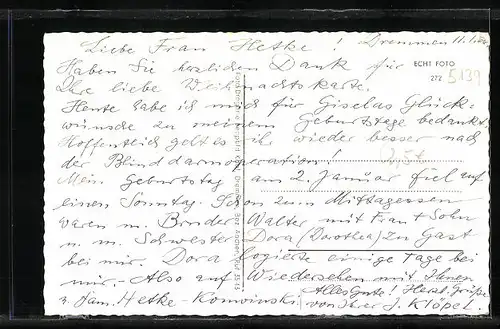 Liebe Frau Hetke! Dremmen 11.1.
Haben Sie herzlichen Dank für
Ihre liebe Weihnachtskarte.
ECHT FOTO
272 5139
Heute habe ich mich für Giselas Glück-
wünsche zu meinem Geburtstage bedankt.
Hoffentlich geht es ihr wieder besser nach
der Blinddarmoperation!
Mein Geburtstag am 2. Januar fiel auf
einen Sonntag. Schon zum Mittagessen
waren m. Bruder Walter mit Frau + Sohn
u. m. Schwester Dora (Dorothea) zu Gast
bei mir. Dora logierte einige Tage bei
mir. Also auf Wiedersehen mit Ihnen
u. Fam. Hetke-Konwinski. Alles Gute! Herzl. Grüße
von Ihrer J. Klöpel.